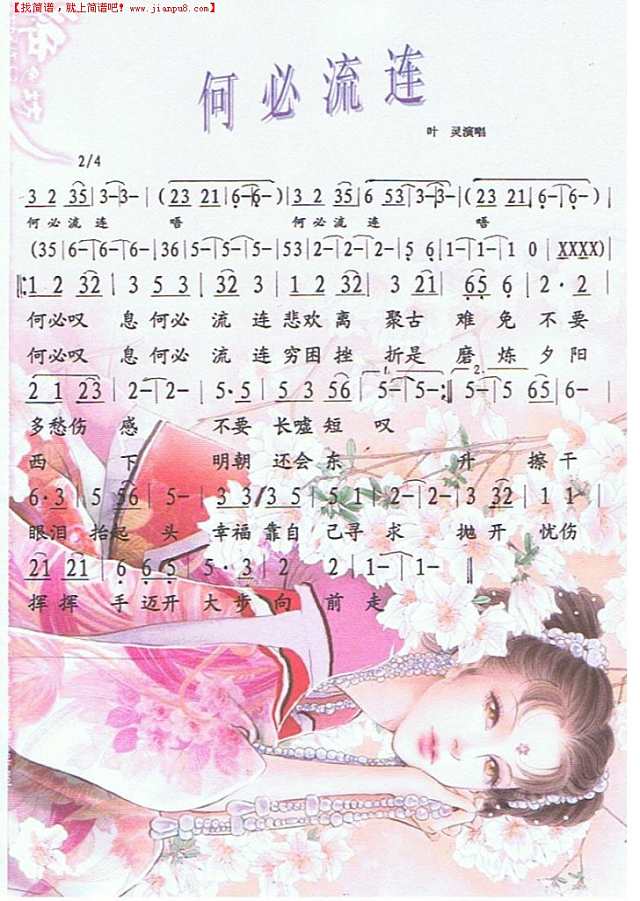 【找简谱，就上简谱吧! www.jianpu8.com】
何必流连
叶 灵演唱
2/4
3 2 35|3-|3-|(23 21|6-|6-)|3 2 35|6 53|3-|3-|(23 21|6-|6-)|
何必流 连 唔 何必流 连 唔
(35|6-|6-|6-|36|5-|5-|5-|53|2-|2-|2-|5 6|1-|1-|1 0|XXXX)|
‖:1 2 32|3 5 3|32 3|1 2 32|3 21|65 6|2·2|
何必叹 息 何必 流 连 悲欢 离 聚古 难 免 不要
何必叹 息 何必 流 连 穷困 挫 折是 磨 炼 夕阳
2 1 23|2-|2-|5·5|5 3 56|1. 5-|5-:‖2. 5-|5 65|6-|
多愁伤 感 不要 长嘘 短 叹
西 下 明朝 还会 东 升 擦干
6·3|5 56|5-|3 2/3|3 35|5 1|2-|2-|3 32|1-|
眼泪 抬起 头 幸福 靠自 己寻 求 抛开 忧伤
21 21|6 65|5·3|2 2|1-|1-‖
挥挥 手 迈开 大步 向 前 走